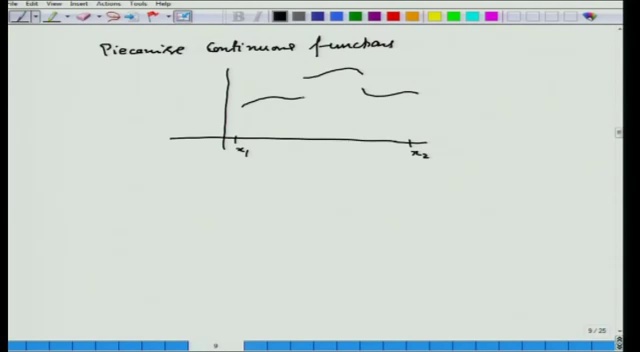 File Edit View Insert Actions Tools Help
Piecewise Continuous functions
x1 x2
9 / 25
9